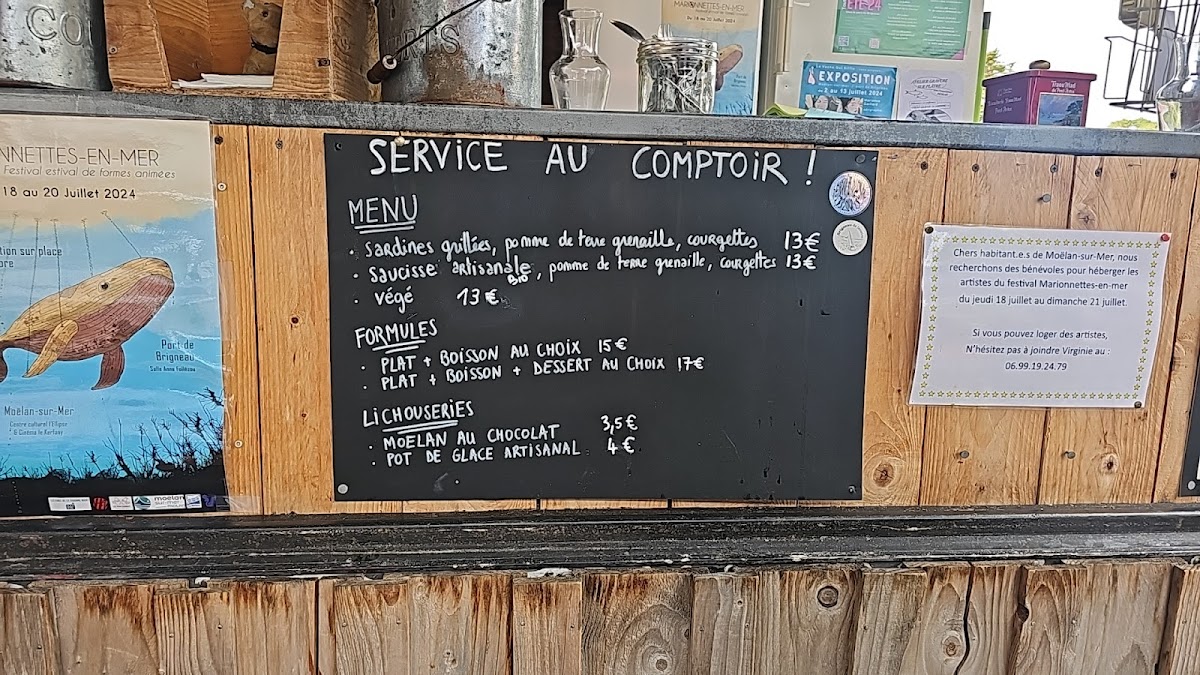 CO
RTS
MARIONNETTES-EN-MER
Du 18 au 20 Juillet 2024
EXPOSITION
2 au 13 juillet 2024
NNETTES-EN-MER
Festival estival de formes animées
18 au 20 Juillet 2024
tion sur place
Port de
Brigneau
Moëlan-sur-Mer
Centre culturel l'Ellipse
& Cinéma le Kerfany
SERVICE AU COMPTOIR !
MENU
. sardines grillées, pomme de terre grenaille, courgettes 13€
. saucisse artisanale Bio, pomme de terre grenaille, courgettes 13€
. végé 13€
FORMULES
. PLAT + BOISSON AU CHOIX 15€
. PLAT + BOISSON + DESSERT AU CHOIX 17€
LICHOUSERIES
. MOELAN AU CHOCOLAT 3,5€
. POT DE GLACE ARTISANAL 4€
Chers habitant.e.s de Moëlan-sur-Mer, nous
recherchons des bénévoles pour héberger les
artistes du festival Marionnettes-en-mer
du jeudi 18 juillet au dimanche 21 juillet.
Si vous pouvez loger des artistes,
N'hésitez pas à joindre Virginie au :
06.99.19.24.79